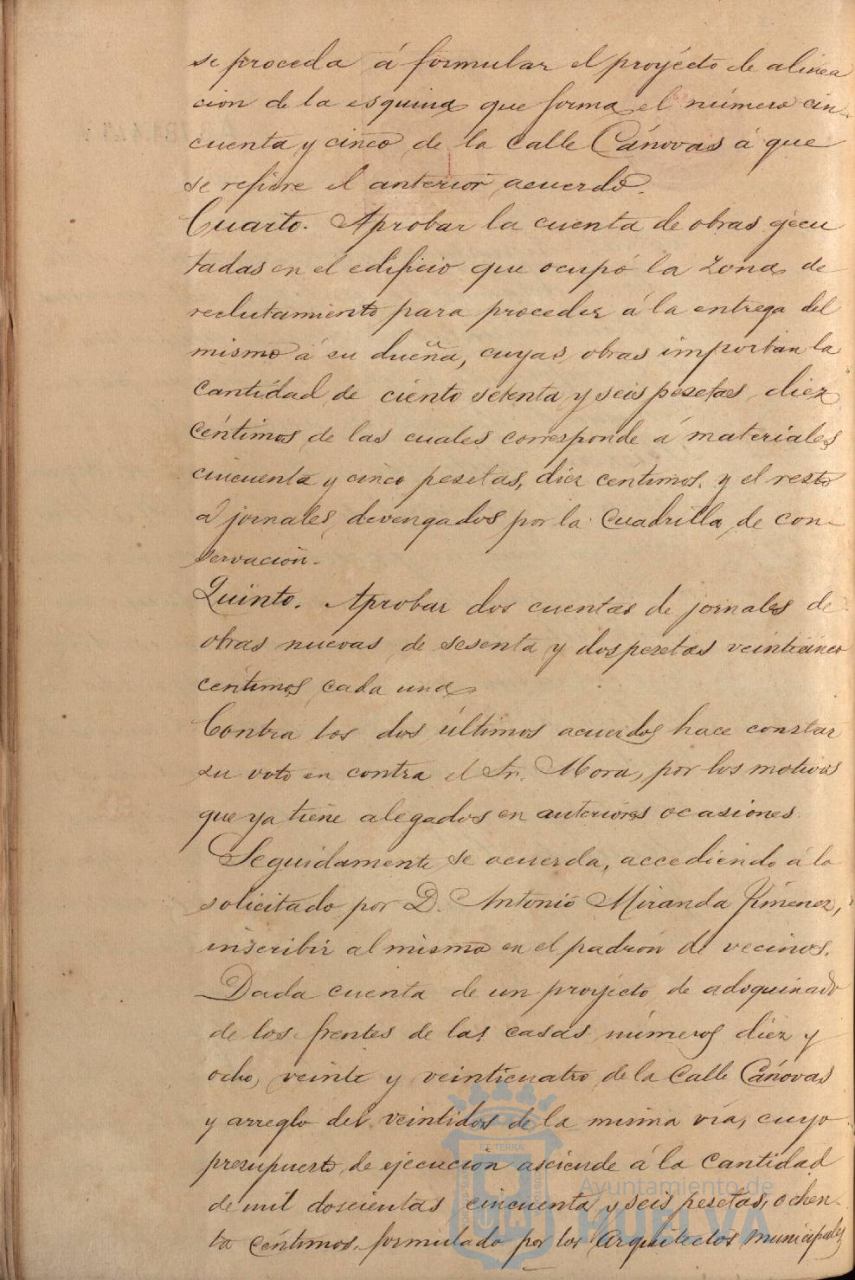 se proceda á formular el proyécto de alinea
cion de la esquina que forma el número cin-
cuenta y cinco de la calle Cánovas á que
se refiere el anterior acuerdo.
Cuarto. Aprobar la cuenta de obras ejecu
tadas en el edificio que ocupó la Zona de
reclutamiento para proceder á la entrega del
mismo á su dueña, cuyas obras importan la
cantidad de ciento setenta y seis pesetas diez
céntimos de las cuales corresponde á materiales
cincuenta y cinco pesetas, diez centimos, y el resto
á jornales devengados por la Cuadrilla de con-
servacion.
Quinto. Aprobar dos cuentas de jornales de
obras nuevas de sesenta y dos pesetas veinticinco
centimos cada una
Contra los dos últimos acuerdos hace constar
su voto en contra el Sr. Mora, por los motivos
que ya tiene alegados en anteriores ocasiones.
Seguidamente se acuerda, accediendo á lo
solicitado por D. Antonio Miranda Jimenez,
inscribir al mismo en el padrón de vecinos.
Dada cuenta de un proyécto de adoquinado
de los frentes de las casas números diez y
ocho, veinte y veinticuatro de la Calle Cánovas
y arreglo del veintidos de la misma via, cuyo
presupuesto de ejecución asciende á la cantidad
de mil doscientas cincuenta y seis pesetas, ochen-
ta céntimos, formulado por los Arquitectos municipales
Ayuntamiento de
HUELVA